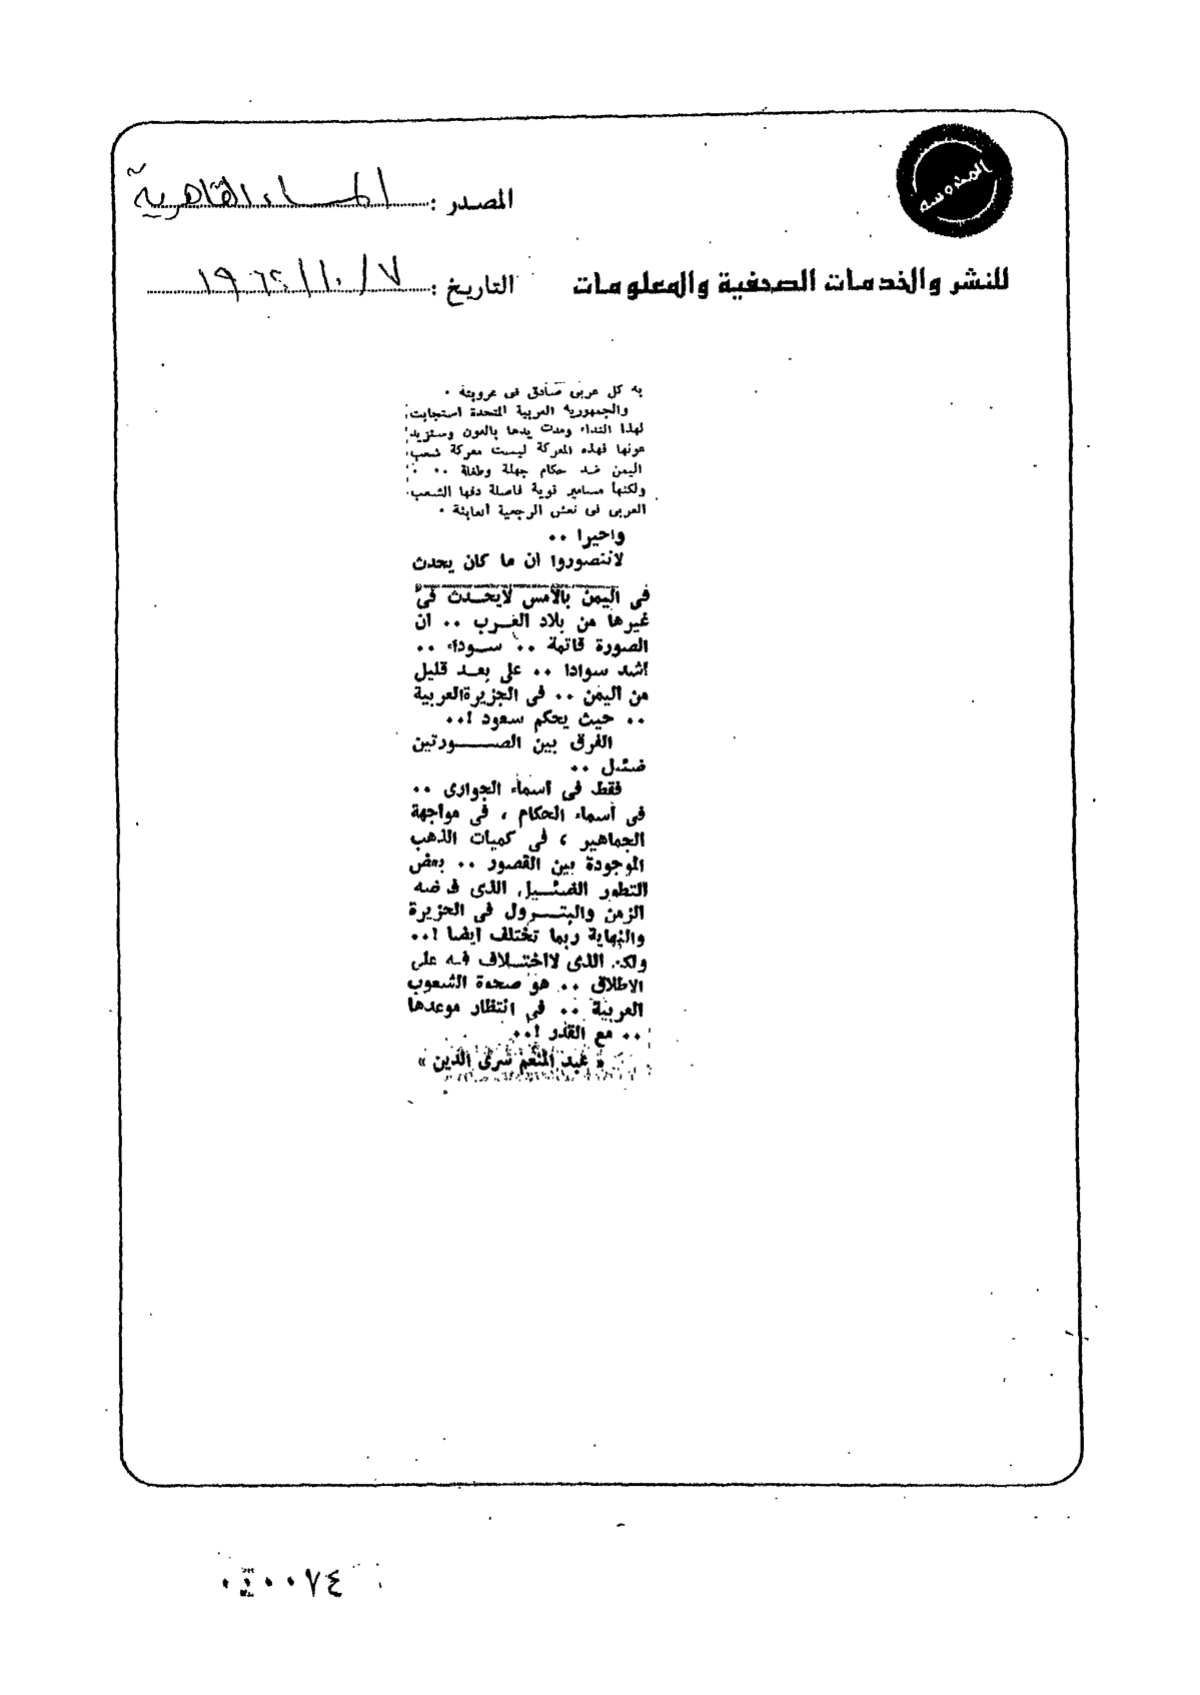 المصدر : المساء القاهرية
للنشر والخدمات الصحفية والمعلومات
التاريخ : ١٩٦٢/١٠/٧
به كل عربى صادق فى عروبته .
والجمهورية العربية المتحدة استجابت
لهذا النداء ومدت يدها بالعون وستزيد
عونها فهذه المعركة ليست معركة شعب
اليمن ضد حكام جهلة وطغاة ..
ولكنها مسامير قوية فاصلة دقها الشعب
العربى فى نعش الرجعية العابثة .
واخيرا ..
لاتتصوروا ان ما كان يحدث
فى اليمن بالامس لايحدث فى
غيرها من بلاد العرب .. ان
الصورة قاتمة .. سوداء ..
أشد سوادا .. على بعد قليل
من اليمن .. فى الجزيرة العربية
.. حيث يحكم سعود !..
الفرق بين الصورتين
ضئيل ..
فقط فى أسماء الجوارى ..
فى أسماء الحكام ، فى مواجهة
الجماهير ، فى كميات الذهب
الموجودة بين القصور .. بعض
التطور الضئيل الذى فرضه
الزمن والبترول فى الجزيرة
والنهاية ربما تختلف ايضا !..
ولكن الذى لااختلاف فيه على
الاطلاق .. هو صحوة الشعوب
العربية .. فى انتظار موعدها
.. مع القدر !..
« عبد المنعم سرى الدين »